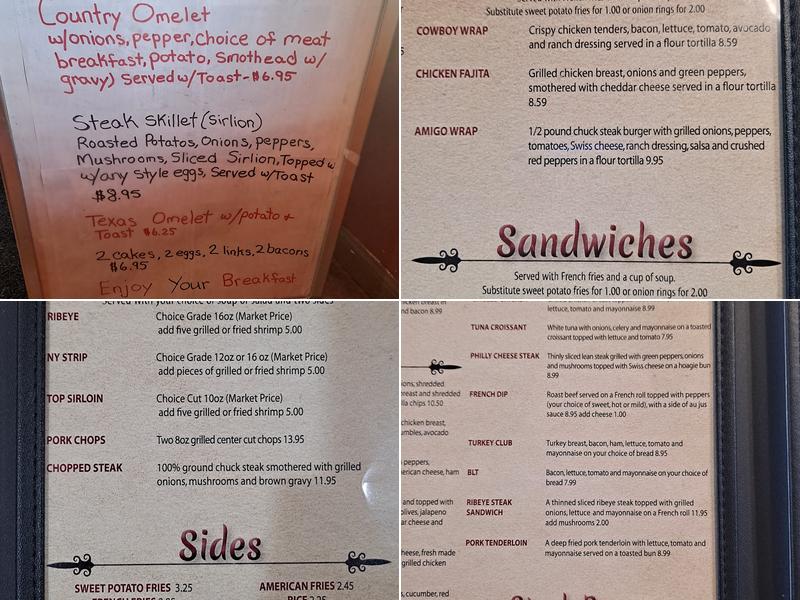 Country Omelet
w/onions, pepper, choice of meat
breakfast, potato, Smothead w/
gravy) Served w/Toast - $6.95
Steak Skillet (Sirlion)
Roasted Potatos, Onions, Peppers,
Mushrooms, Sliced Sirlion, Topped w
w/any Style eggs, Served w/Toast
$8.95
Texas Omelet w/potato +
Toast $6.25
2 cakes, 2 eggs, 2 links, 2 bacons
$6.95
Enjoy Your Breakfast
Substitute sweet potato fries for 1.00 or onion rings for 2.00
COWBOY WRAP Crispy chicken tenders, bacon, lettuce, tomato, avocado
and ranch dressing served in a flour tortilla 8.59
CHICKEN FAJITA Grilled chicken breast, onions and green peppers,
smothered with cheddar cheese served in a flour tortilla
8.59
AMIGO WRAP 1/2 pound chuck steak burger with grilled onions, peppers,
tomatoes, Swiss cheese, ranch dressing, salsa and crushed
red peppers in a flour tortilla 9.95
Sandwiches
Served with French fries and a cup of soup.
Substitute sweet potato fries for 1.00 or onion rings for 2.00
RIBEYE Choice Grade 16oz (Market Price)
add five grilled or fried shrimp 5.00
NY STRIP Choice Grade 12oz or 16 oz (Market Price)
add pieces of grilled or fried shrimp 5.00
TOP SIRLOIN Choice Cut 10oz (Market Price)
add five grilled or fried shrimp 5.00
PORK CHOPS Two 8oz grilled center cut chops 13.95
CHOPPED STEAK 100% ground chuck steak smothered with grilled
onions, mushrooms and brown gravy 11.95
Sides
SWEET POTATO FRIES 3.25 AMERICAN FRIES 2.45
lettuce, tomato and mayonnaise 8.99
and bacon 8.99
TUNA CROISSANT White tuna with onions, celery and mayonnaise on a toasted
croissant topped with lettuce and tomato 7.95
PHILLY CHEESE STEAK Thinly sliced lean steak grilled with green peppers, onions
and mushrooms topped with Swiss cheese on a hoagie bun
8.99
FRENCH DIP Roast beef served on a French roll topped with peppers
(your choice of sweet, hot or mild), with a side of au jus
sauce 8.95 add cheese 1.00
TURKEY CLUB Turkey breast, bacon, ham, lettuce, tomato and
mayonnaise on your choice of bread 8.95
BLT Bacon, lettuce, tomato and mayonnaise on your choice of
bread 7.99
RIBEYE STEAK
SANDWICH A thinned sliced ribeye steak topped with grilled
onions, lettuce and mayonnaise on a French roll 11.95
add mushrooms 2.00
PORK TENDERLOIN A deep fried pork tenderloin with lettuce, tomato and
mayonnaise served on a toasted bun 8.99
shredded
breast and shredded
chips 10.50
chicken breast,
avocado
peppers,
cheese, ham
and topped with
olives, jalapeno
cheese and
cheese, fresh made
grilled chicken
cucumber, red